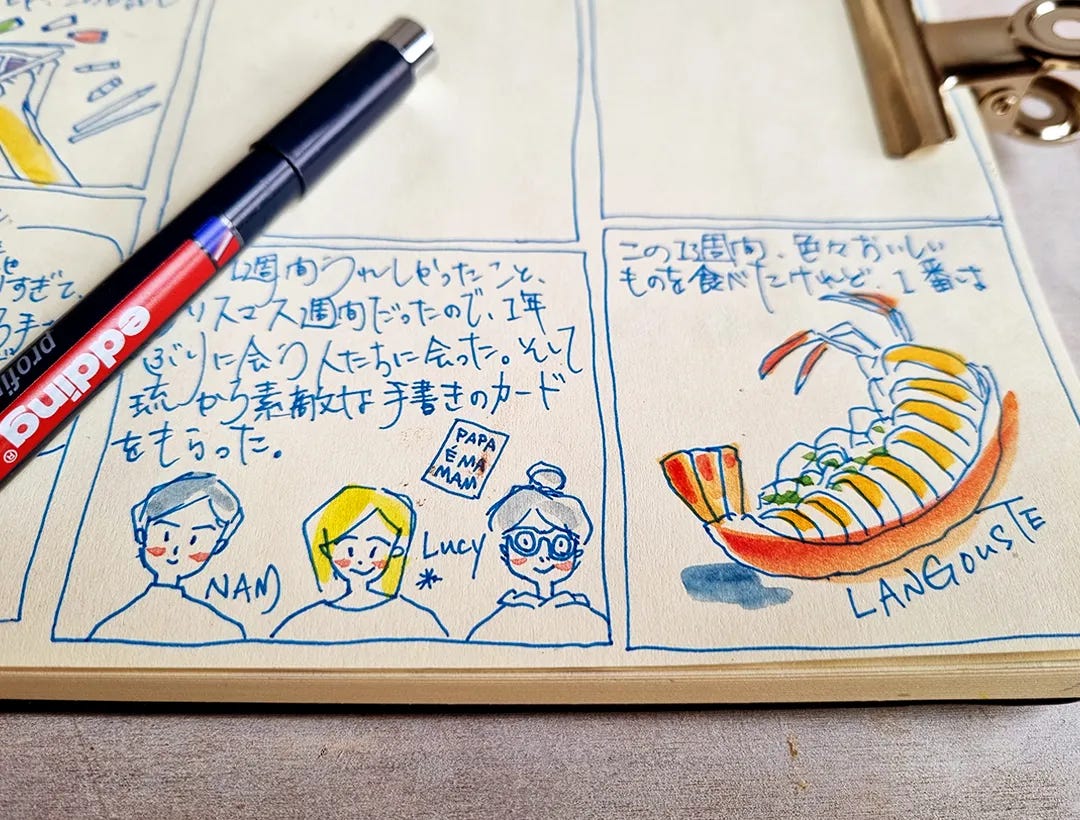 すぎて、
edding
profi
1週間うれしかったこと、
リスマス週間だったので、1年
ぶりに会う人たちに会った。そして
琉から素敵な手書きのカード
をもらった。
PAPA
É MA
MAM
NAM
Lucy
この1週間、色々おいしい
ものを食べたけれど、1番は
LANGOUSTE